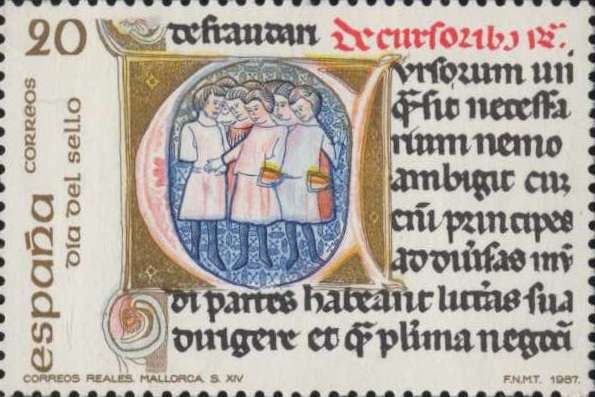 20
CORREOS
españa
día del sello
defraudari De cursoribꝫ
Cursorum uti
q̃ sit necessa
rium nemo
ambigit cur
cũ principes
ad diuisas mũ
di partes habeant litt̃as sua
dirigere et q̃ pl̃ima negoci
CORREOS REALES. MALLORCA. S. XIV
F.N.M.T. 1987.